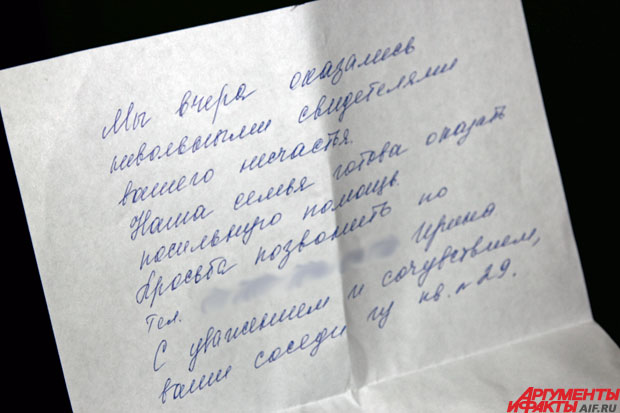 Мы вчера оказались
невольными свидетелями
вашего несчастья.
Наша семья готова оказать
посильную помощь.
Просьба позвонить по
тел. Ирина
С уважением и сочувствием,
ваши соседи из кв. № 29.
АРГУМЕНТЫ
И ФАКТЫ AIF.RU